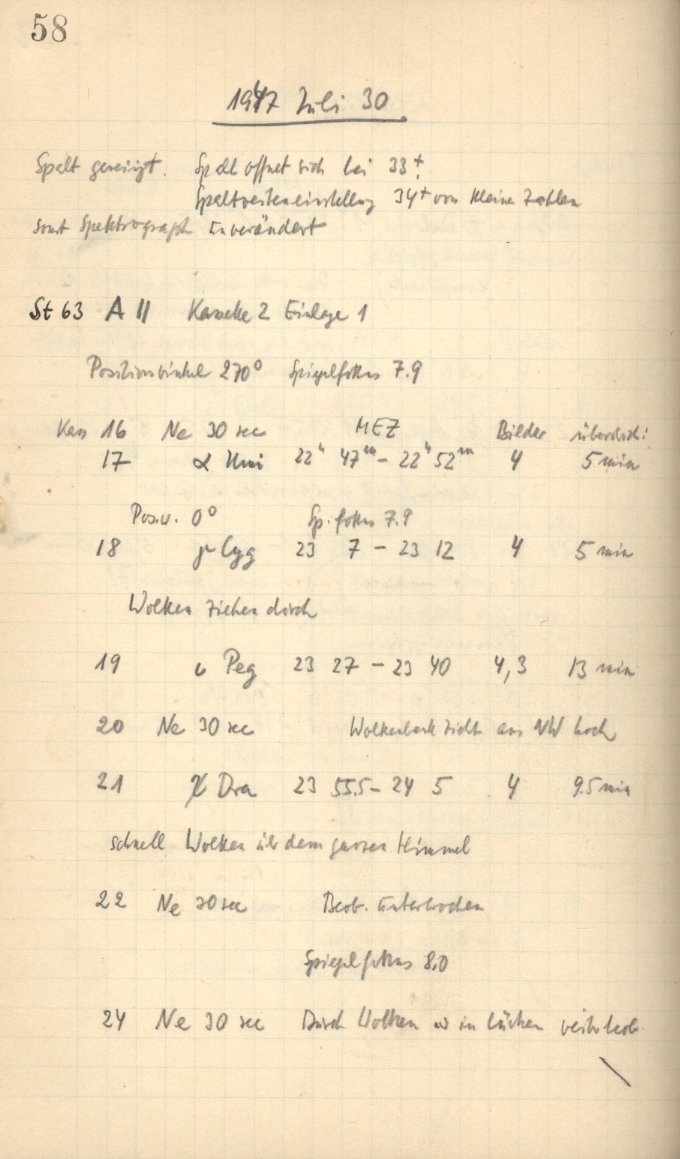 58
1947 Juli 30
Spalt gereinigt. Spalt öffnet sich bei 33+
Spaltweiteneinstellung 34+ von kleine Zahlen
sonst Spektrograph unverändert
St 63 A II Kassette 2 Einlage 1
Positionswinkel 270° Spiegelfokus 7.9
Kass 16 Ne 30 sec MEZ Bilder
17 α Umi 22h 47m – 22h 52m 4 5 min
Posw. 0° Sp. fokus 7.9
18 γ Cyg 23 7 – 23 12 4 5 min
Wolken ziehen durch
19 ι Peg 23 27 – 23 40 4,3 13 min
20 Ne 30 sec Wolkenbank zieht aus NW hoch
21 χ Dra 23 55.5 – 24 5 4 9.5 min
schnell Wolken üb dem ganzen Himmel
22 Ne 30 sec Beob. unterbrochen
Spiegelfokus 8,0
24 Ne 30 sec Durch Wolken in Lücken